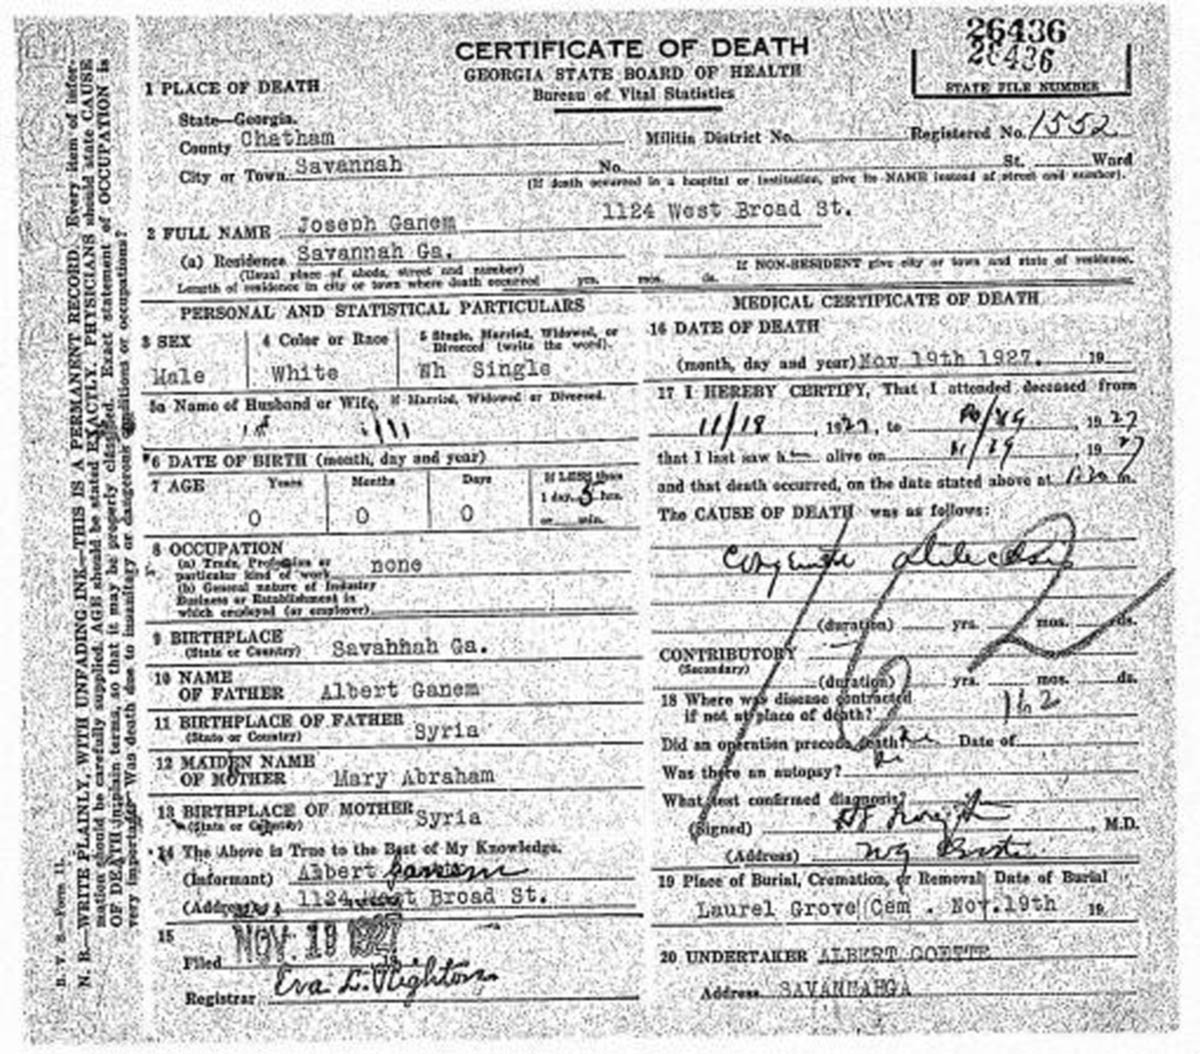 26436
26436
STATE FILE NUMBER
CERTIFICATE OF DEATH
GEORGIA STATE BOARD OF HEALTH
Bureau of Vital Statistics
1 PLACE OF DEATH
State—Georgia.
County Chatham Militia District No. Registered No. 1552
City or Town Savannah No. St. Ward
(If death occurred in a hospital or institution, give its NAME instead of street and number).
1124 West Broad St.
2 FULL NAME Joseph Ganem
(a) Residence Savannah Ga.
(Usual place of abode, street and number) If NON-RESIDENT give city or town and state of residence.
Length of residence in city or town where death occurred yrs. mos. ds.
PERSONAL AND STATISTICAL PARTICULARS
3 SEX
Male
4 Color or Race
White
5 Single, Married, Widowed, or
Divorced (write the word).
Wh Single
5a Name of Husband or Wife, If Married, Widowed or Divorced.
6 DATE OF BIRTH (month, day and year)
7 AGE Years Months Days If LESS than
1 day 5 hrs.
or min.
0 0 0
8 OCCUPATION
(a) Trade, Profession or
particular kind of work none
(b) General nature of Industry
Business or Establishment in
which employed (or employer)
9 BIRTHPLACE
(State or Country) Savahhah Ga.
10 NAME
OF FATHER Albert Ganem
11 BIRTHPLACE OF FATHER
(State or Country) Syria
12 MAIDEN NAME
OF MOTHER Mary Abraham
13 BIRTHPLACE OF MOTHER
(State or Country) Syria
14 The Above is True to the Best of My Knowledge.
(Informant) Albert Ganem
(Address) 1124 West Broad St.
15
Filed NOV. 19 1927 19
Registrar Eva L. Wightman
MEDICAL CERTIFICATE OF DEATH
16 DATE OF DEATH
(month, day and year) Nov 19th 1927. 19
17 I HEREBY CERTIFY, That I attended deceased from
11/18, 1927, to 19 27
that I last saw h alive on 11/19, 19 27
and that death occurred, on the date stated above at m.
The CAUSE OF DEATH was as follows:
(duration) yrs. mos. ds.
CONTRIBUTORY
(Secondary)
(duration) yrs. mos. ds.
18 Where was disease contracted
if not at place of death?
Did an operation precede death? Date of
Was there an autopsy?
What test confirmed diagnosis?
(Signed) , M.D.
(Address)
19 Place of Burial, Cremation, or Removal Date of Burial
Laurel Grove Cem . Nov.19th 19
20 UNDERTAKER ALBERT GOETTE
Address SAVANNAHGA
B. V. S.—Form 11.
N. B.—WRITE PLAINLY, WITH UNFADING INK—THIS IS A PERMANENT RECORD. Every item of information should be carefully supplied. AGE should be stated EXACTLY. PHYSICIANS should state CAUSE
OF DEATH in plain terms, so that it may be properly classified. Exact statement of OCCUPATION is
very important. Was death due to insanitary or dangerous conditions or occupations?